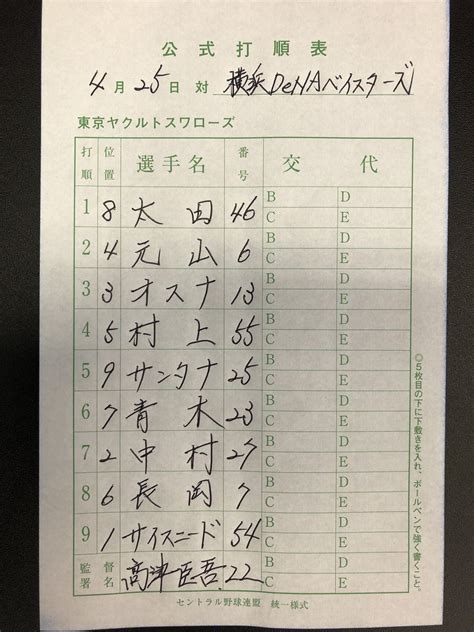 公式打順表
4月25日 対 横浜DeNAベイスターズ
東京ヤクルトスワローズ
打順 位置 選手名 番号 交代
1 8 太田 46 B D C E
2 4 元山 6 B D C E
3 3 オスナ 13 B D C E
4 5 村上 55 B D C E
5 9 サンタナ 25 B D C E
6 7 青木 23 B D C E
7 2 中村 27 B D C E
8 6 長岡 7 B D C E
9 1 サイスニード 54 B D C E
監督署名 高津臣吾 22
◎5枚目の下に下敷きを入れ、ボールペンで強く書くこと。
セントラル野球連盟 統一様式